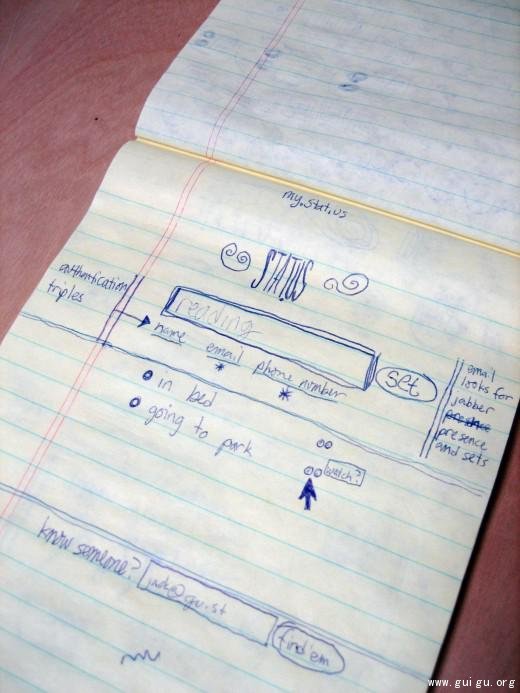 my.stat.us
STAT.US
authentication
triples
reading
set
name
email
phone number
*
*
in bed
going to park
watch?
email
looks for
jabber
presence
presence
and sets
know someone?
jack@gu.st
find'em
www.guigu.org